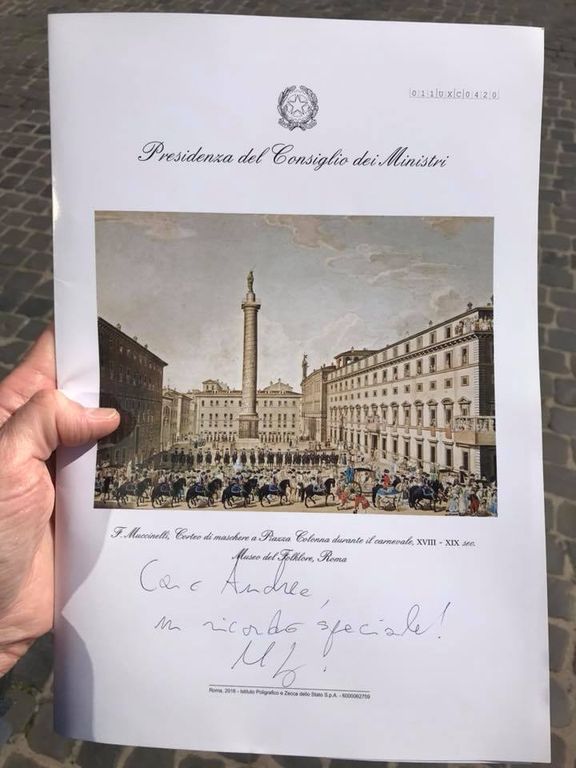 011UXC0420
Presidenza del Consiglio dei Ministri
F. Muccinelli, Corteo di maschere a Piazza Colonna durante il carnevale, XVIII - XIX sec.
Museo del Folklore, Roma
Caro Andrea,
un ricordo speciale!
Roma, 2016 - Istituto Poligrafico e Zecca dello Stato S.p.A. - 6000062759